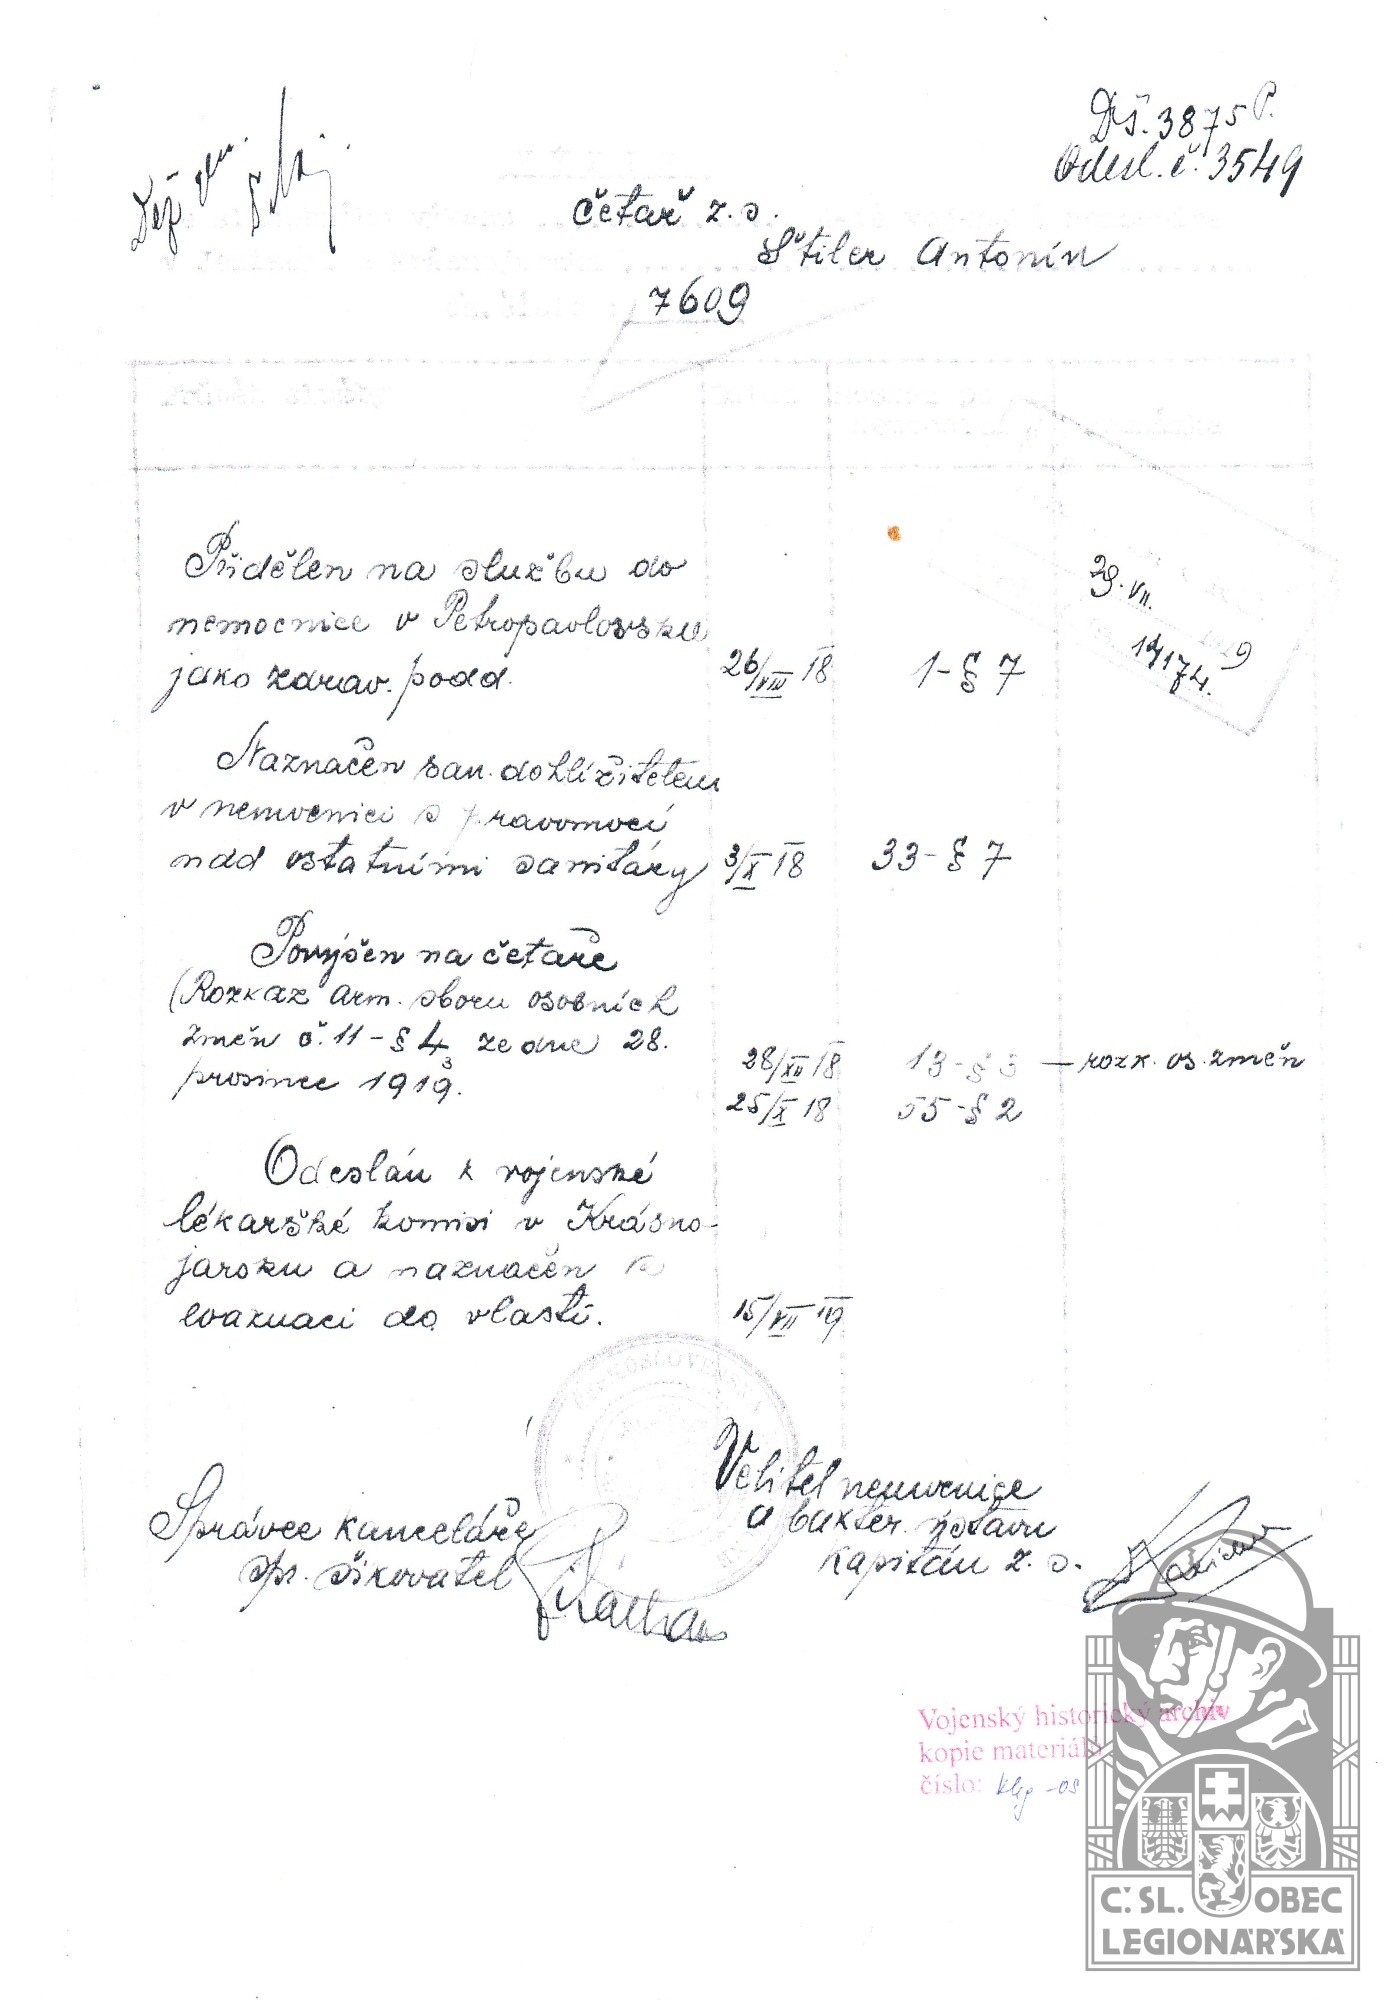 Dš. 3875 P.
Odesl. č. 3549
četař z. s.
Štiler Antonín
7609
Přidělen na službu do
nemocnice v Petropavlovsku
jako zdrav. podd. 26/VIII 18 1-§ 7
29. VII.
1919
14174.
Naznačen san. dohlížitelem
v nemocnici s pravomocí
nad ostatními sanitáry 3/X 18 33-§ 7
Povýšen na četaře
(Rozkaz arm. sboru osobních
změn č. 11-§ 4 ze dne 28.
prosince 1919. 28/XII 18 13-§ 3 — rozk. os. změn
3
25/X 18 55-§ 2
Odeslán k vojenské
lékařské komisi v Krásno-
jarsku a naznačen k
evakuaci do vlasti. 15/VII 19
Správce kanceláře
šikovatel
Velitel nemocnice
a bakter. ústavu
kapitán z. s.
Vojenský historický archiv
kopie materiálu
číslo:
Č.SL. OBEC
LEGIONÁŘSKÁ